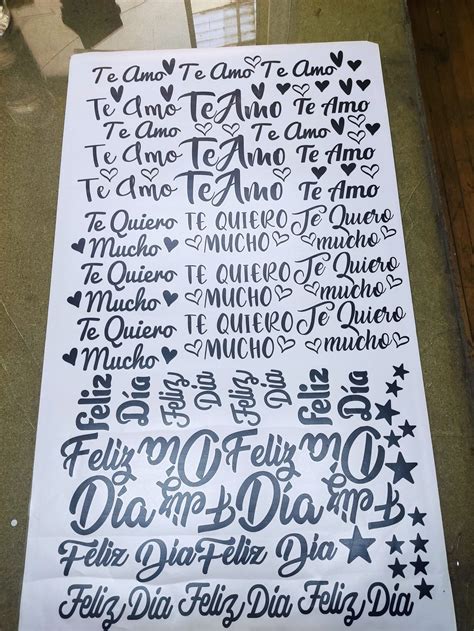 Te Amo Te Amo Te Amo
Te Amo Te Amo Te Amo
Te Amo Te Amo
Te Amo Te Amo Te Amo
Te Amo Te Amo Te Amo
Te Quiero TE QUIERO Te Quiero
Mucho MUCHO mucho
Te Quiero TE QUIERO Te Quiero
Mucho MUCHO mucho
Te Quiero TE QUIERO Te Quiero
Mucho MUCHO mucho
Feliz Día Feliz Día Feliz Día Feliz Día
Feliz Día Feliz Día
Día Feliz Día Feliz
Feliz Día Feliz Día
Feliz Día Feliz Día Feliz Día